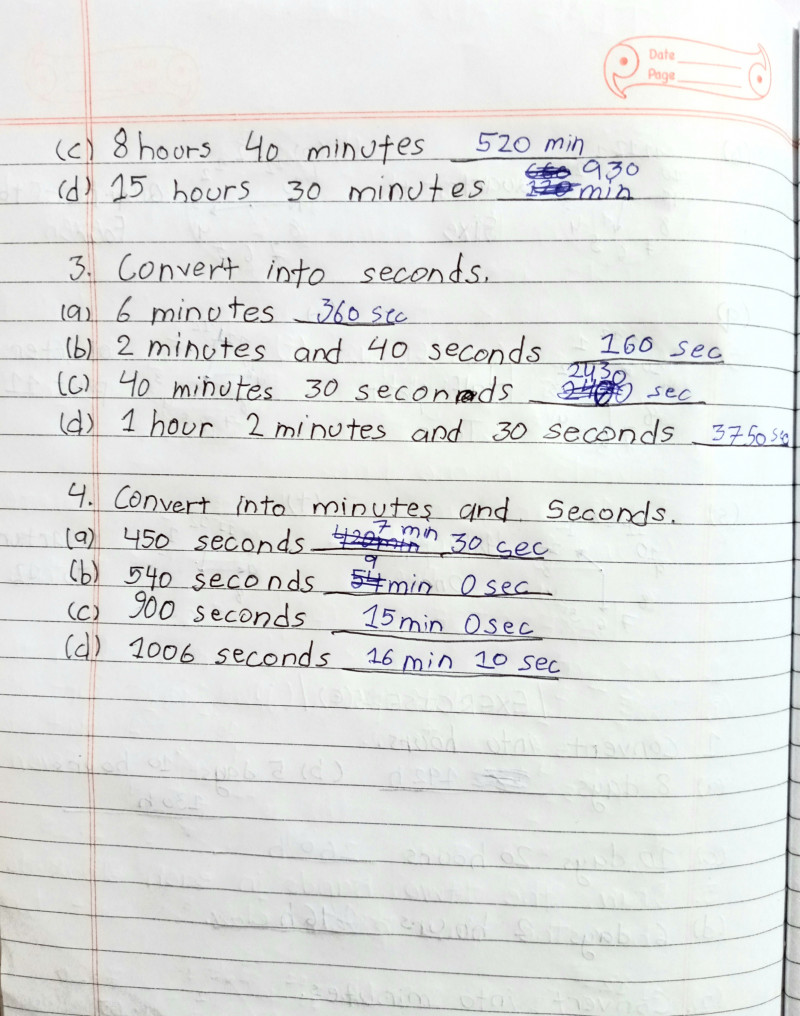 Date
Page
(c) 8 hours 40 minutes 520 min
930
(d) 15 hours 30 minutes min
3. Convert into seconds.
(a) 6 minutes 360 sec
(b) 2 minutes and 40 seconds 160 sec
2430
(c) 40 minutes 30 seconds sec
(d) 1 hour 2 minutes and 30 seconds 3750 sec
4. Convert into minutes and Seconds.
7 min
(a) 450 seconds 30 sec
9
(b) 540 seconds min 0 sec
(c) 900 seconds 15 min 0 sec
(d) 1006 seconds 16 min 10 sec